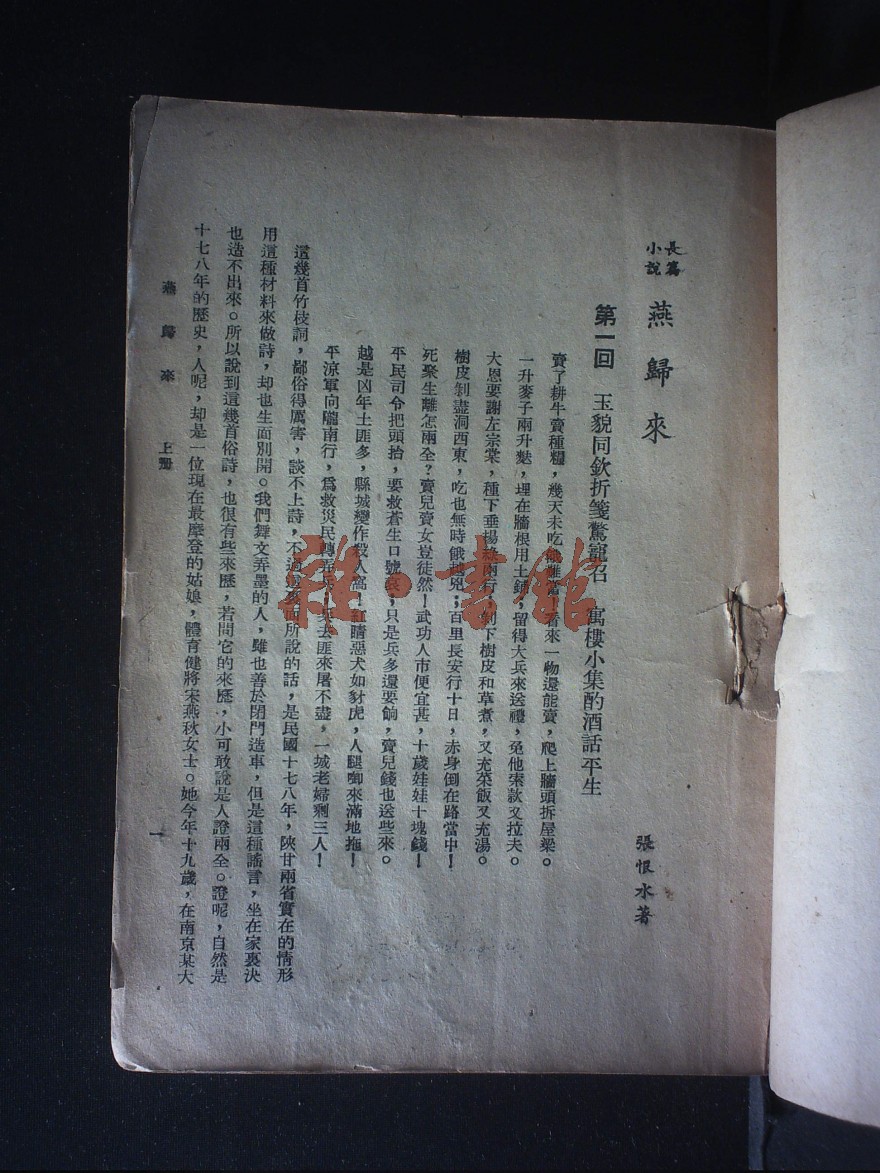 長篇小說 燕歸來
張恨水著
第一回 玉貌同欽折箋驚寵召 寓樓小集酌酒話平生
賣了耕牛賣種糧，幾天未吃 看來一物還能賣，爬上牆頭拆屋梁。
一升麥子兩升麩，埋在牆根用土鋪，留得大兵來送禮，免他索款又拉夫。
大恩要謝左宗棠，種下垂楊綠兩行，剝下樹皮和草煮，又充菜飯又充湯。
樹皮剝盡洞西東，吃也無時餓越兇；百里長安行十日，赤身倒在路當中！
死聚生離怎兩全？賣兒賣女豈徒然！武功人市便宜甚，十歲娃娃十塊錢！
平民司令把頭抬，要救蒼生口號哀，只是兵多還要餉，賣兒錢也送些來。
越是凶年土匪多，縣城變作殺人窩，紅睛惡犬如豺虎，人腿啣來滿地拖！
平涼軍向隴南行，爲救災民轉弄兵！兵去匪來屠不盡，一城老婦剩三人！
這幾首竹枝詞，鄙俗得厲害，談不上詩，不過這裏面所說的話，是民國十七八年，陝甘兩省實在的情形
用這種材料來做詩，却也生面別開。我們舞文弄墨的人，雖也善於閉門造車，但是這種謠言，坐在家裏決
也造不出來。所以說到這幾首俗詩，也很有些來歷，若問它的來歷，小可敢說是人證兩全。證呢，自然是
十七八年的歷史，人呢，却是一位現在最摩登的姑娘，體育健將宋燕秋女士。她今年十九歲，在南京某大
燕歸來 上冊 一
雜·書館